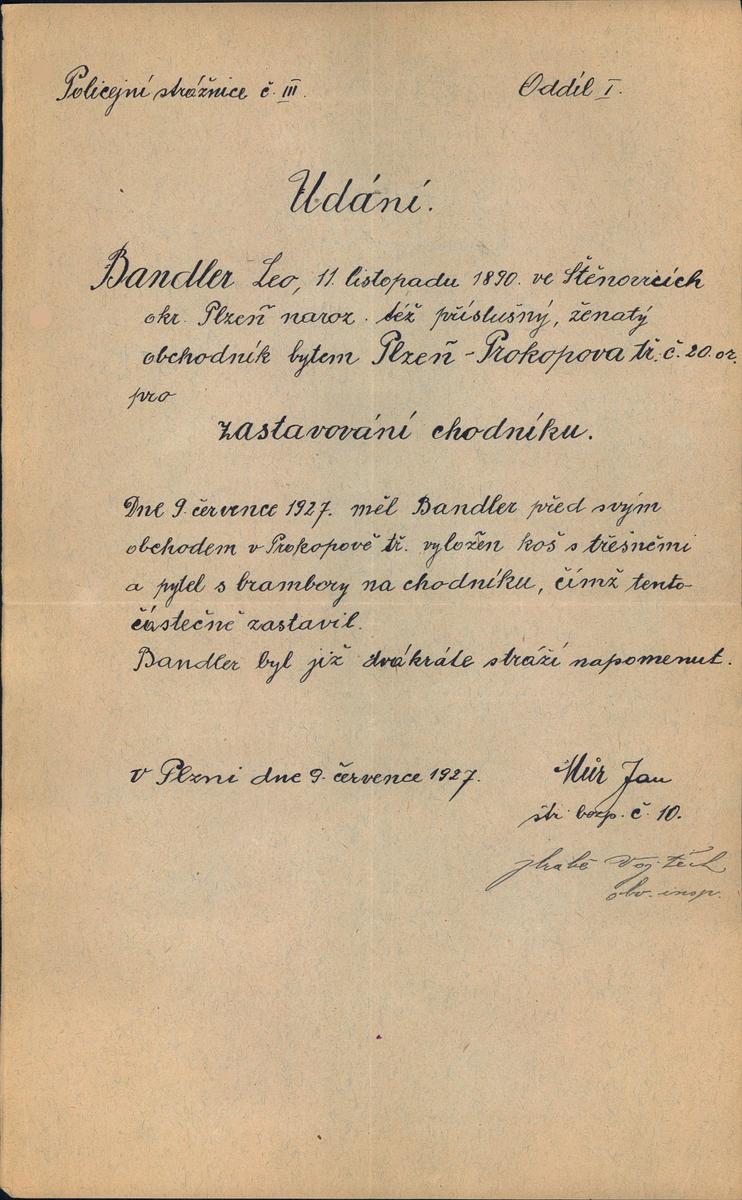 Policejní strážnice č. III.
Oddíl I.
Udání.
Bandler Leo, 11. listopadu 1890. ve Štěnovicích
okr. Plzeň naroz. též příslušný, ženatý
obchodník bytem Plzeň - Prokopova tř. č. 20. or.
pro
zastavování chodníku.
Dne 9. července 1927. měl Bandler před svým
obchodem v Prokopově tř. vyložen koš s třešněmi
a pytel s brambory na chodníku, čímž tento
částečně zastavil.
Bandler byl již dvákráte stráží napomenut.
V Plzni dne 9. července 1927.
Můr Jan
str. bezp. č. 10.
Vojtěch
obv. insp.